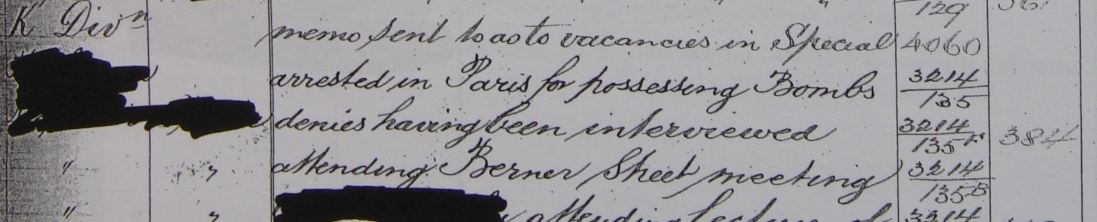 129
K Divn memo sent to as to vacancies in Special 4060
arrested in Paris for possessing Bombs 3214/135
denies having been interviewed 3214/135A 384
" " attending Berner Street meeting 3214/135B
" " attending Lecture of 3214